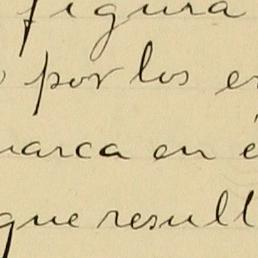 figura
por los
marca en
que result